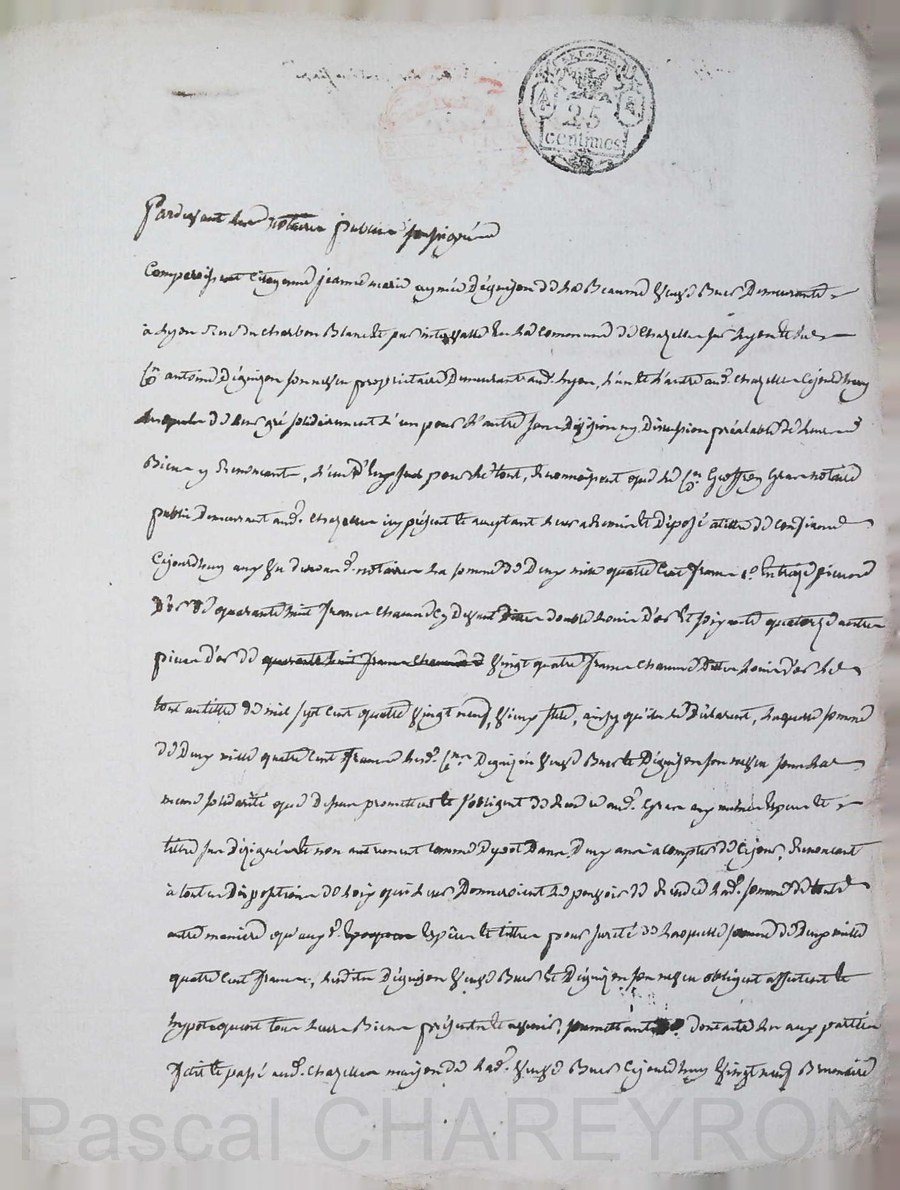 25
centimes
Pardevant les notaires publics soussignés
Comparoissent Citoyenne jeanne marie aymée Déguison de La Beaume Veuve Buer Demeurante
à Lyon rue du charbon Blanc et par intervalle en La Commune de Chazelle sur Lyon et Sieur
Cen antoine Déguison son neveu propriétaire Demeurant aud. Lyon, L'un et L'autre aud. Chazelle Cejourdhuy
de Leur gré solidairement L'un pour L'autre sans Division ny Discussion préalable de Leurs
Biens y Renoncant, L'un d'Eux seul pour Le tout, Reconnoissent que Le Cen Geoffroy Gras notaire
public Demeurant aud. Chazelle icy présent et acceptant Leur a Remis et Déposé à titre de Confiance
Cejourdhuy aux Vu desdits notaires La somme de Deux mille quatre Cent francs En treize pieces
D'or de quarante huit francs Chacune Cy Devant Dittes double Louis d'or Et soixante quatorze autres
pieces d'or de quarante huit francs Chacune de Vingt quatre francs Chacune Ditte Louis d'or Le
tout au titre de mil sept Cent quatre Vingt neuf, Vieux stile, ainsy qu'ils Le Déclarent, Laquelle somme
de Deux mille quatre Cent francs Lesd. Cens Déguison Veuve Buer et Déguison son neveu sous La
meme solidarité que Dessus promettent et s'obligent de Rendre aud. Gras aux mêmes Espèces et
titre sus Désignés et non autrement Comme Dépot Dans Deux ans à Compter de Cejour, Renoncant
à toutes Dispositions de Loix qui Leurs Donneroient Le pouvoir de Rendre Lad. somme de toute
autre maniere qu'aux d. Espèces et titre, pour sureté de Laquelle somme de Deux mille
quatre Cent francs, Lesdits Déguison Veuve Buer et Déguison son neveu obligent affectent et
hypotequent tous Leurs Biens présents et avenirs, promettants Dont acte Lu aux parties
Fait et passé aud. Chazelle maison de Lad. Veuve Buer Cejourdhuy Vingt neuf Brumaire
Pascal CHAREYRON